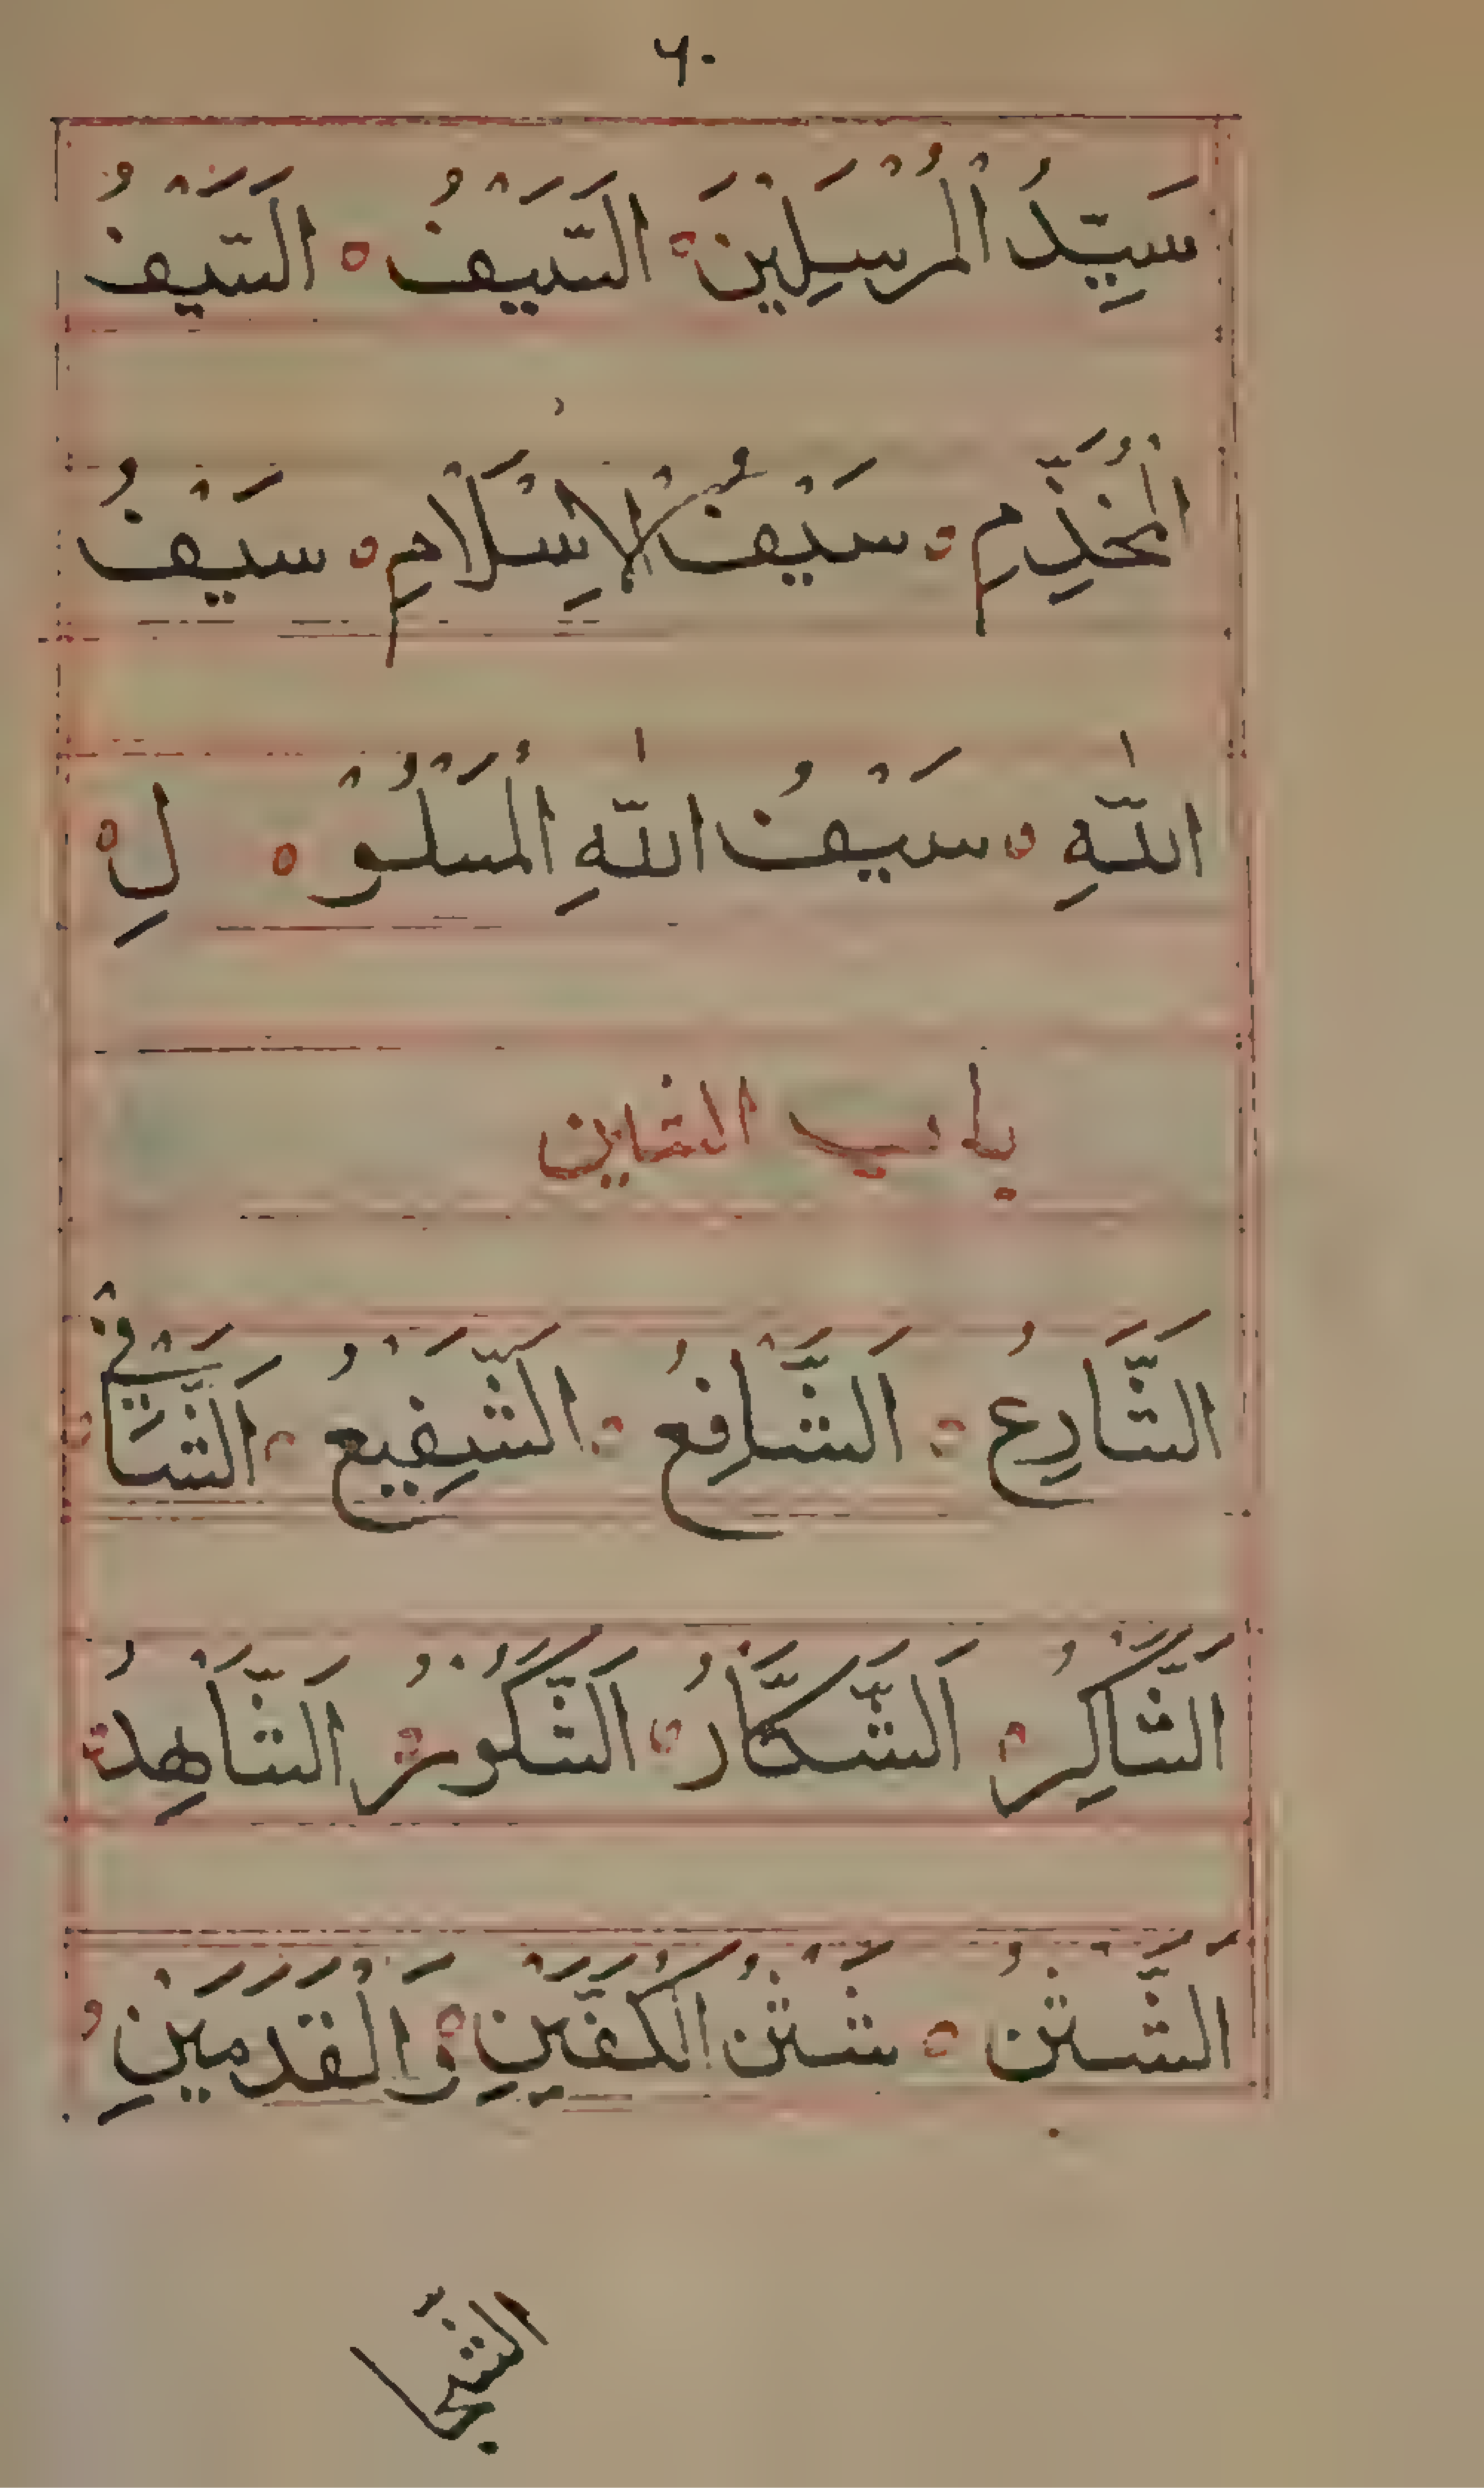 ٦٠
سَيِّدُ الْمُرْسَلِيْنَ ۝ السَّيْفُ ۝ السَّيْفُ
الْمُخَذِّمِ ۝ سَيْفُ الْاِسْلَامِ ۝ سَيْفُ
اللّٰهِ ۝ سَيْفُ اللّٰهِ الْمَسْلُوْ ۝ لِ ۝
باب الشين
الشَّارِعُ ۝ الشَّافِعُ ۝ الشَّفِيْعُ ۝ الشَّافِيْ ۝
الشَّاكِرُ ۝ الشَّكَّارُ ۝ الشَّكُوْرُ ۝ الشَّاهِدُ ۝
الشَّثْنُ ۝ شَثْنُ الْكَفَّيْنِ وَالْقَدَمَيْنِ ۝